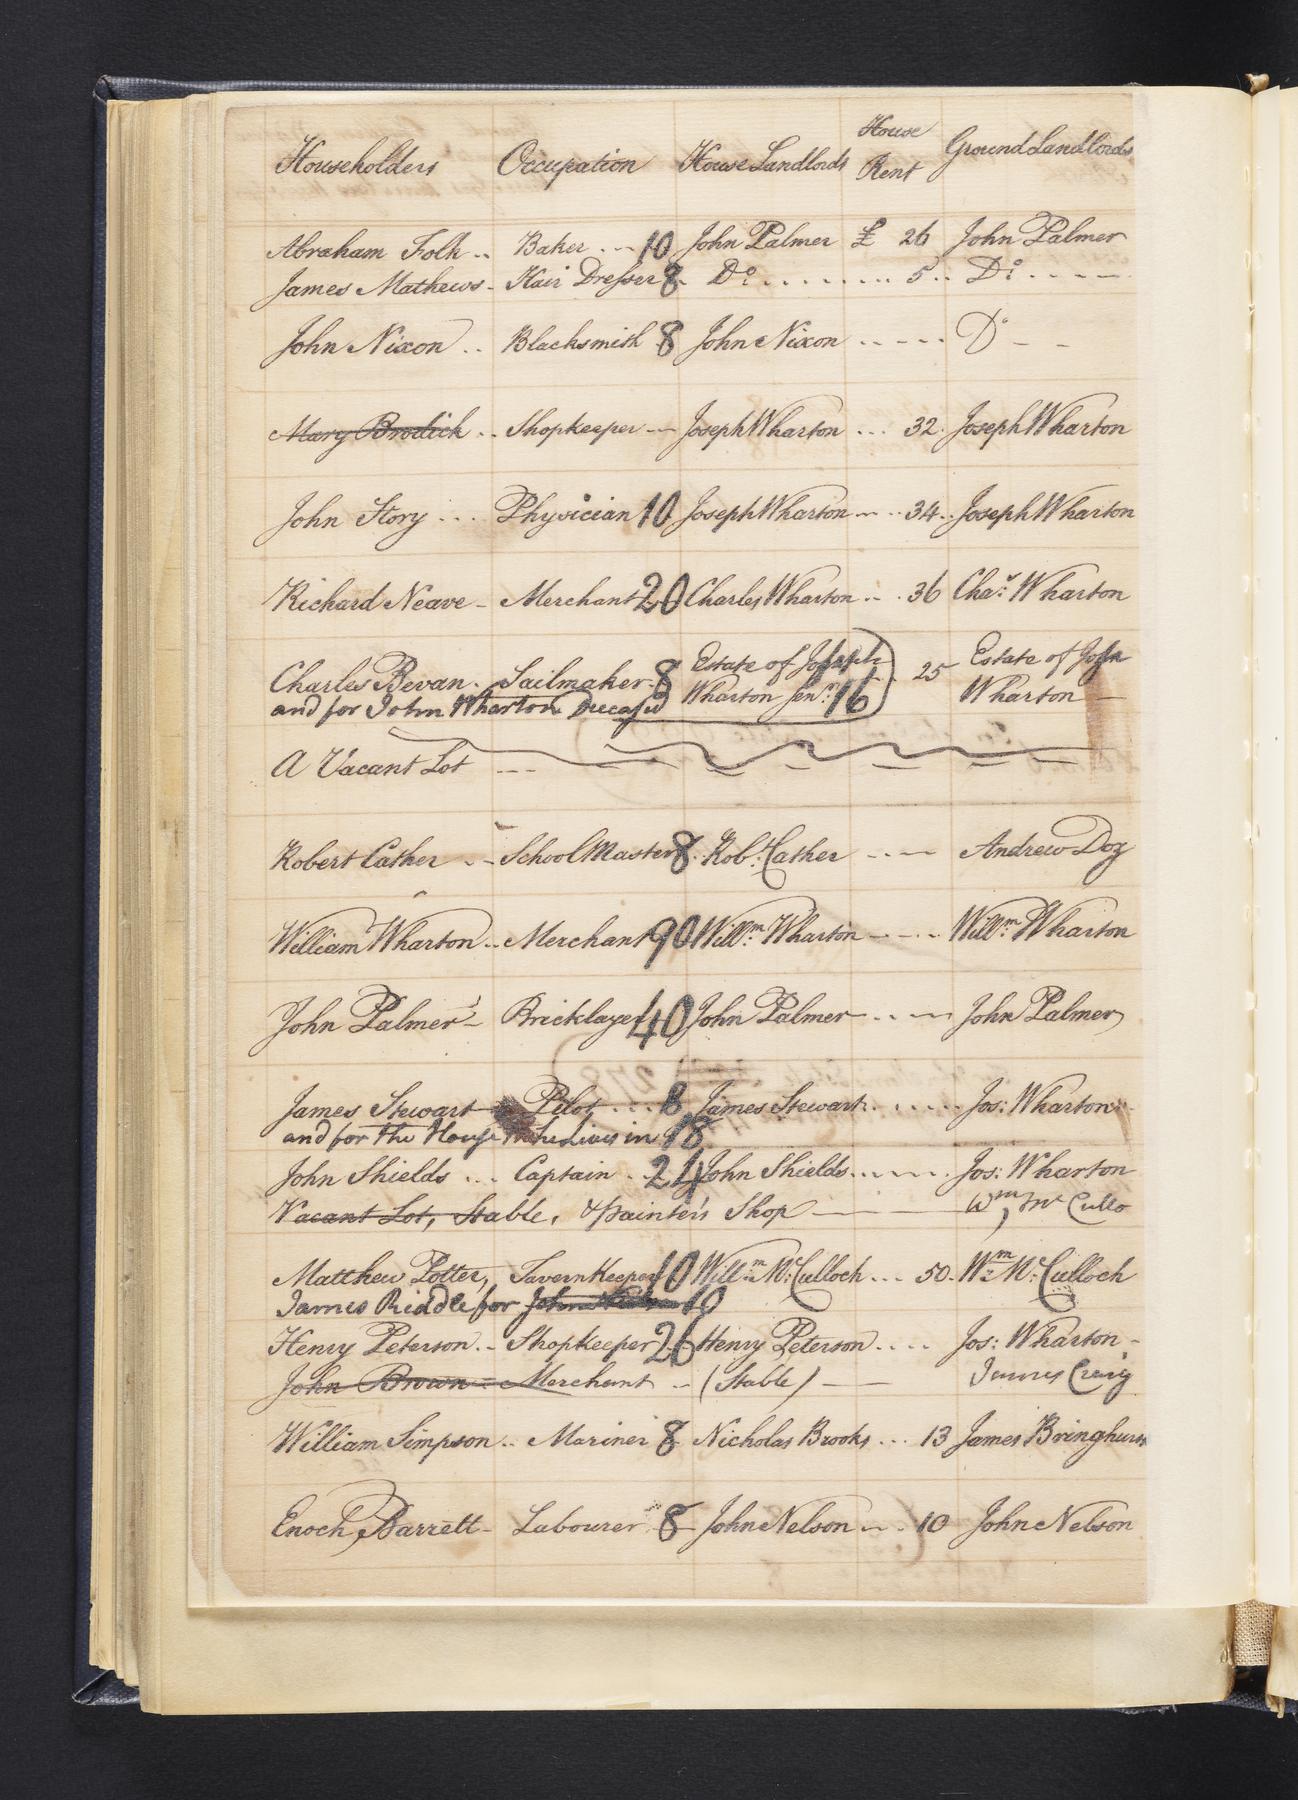 Householders Occupation House Landlords House Rent Ground Landlords
Abraham Folk .. Baker ... 10 John Palmer £ 26 John Palmer
James Mathews - Hair Dresser 8 Do ........ 5 .. Do ....
John Nixon .. Blacksmith 8 John Nixon ..... Do - -
Mary Brodick .. Shopkeeper -- Joseph Wharton ... 32. Joseph Wharton
John Story ... Physician 10 Joseph Wharton ... 34.. Joseph Wharton
Richard Neave - Merchant 20 Charles Wharton ... 36 Chas: Wharton
Charles Bevan. Sailmaker. 8 Estate of Joseph Wharton Senr. 16 25 Estate of Josh Wharton
and for John Wharton Deceasd
A Vacant Lot ---
Robert Cather .. School Master 8. Robt. Cather .... Andrew Doz
William Wharton .. Merchant 90 Willm: Wharton ..... Willm: Wharton
John Palmer - Bricklayer 40 John Palmer .... John Palmer
James Stewart Pilot .... 8 James Stewart ..... Jos: Wharton
and for the House he Lives in 18
John Shields ... Captain .. 24 John Shields ..... Jos: Wharton
Vacant Lot, Stable, & painter's Shop Wm Mc Cullo
Matthew Potter, Tavern Keeper 10 Willm Mc:Culloch ... 50. Wm: Mc:Culloch
James Riddle for John 10
Henry Peterson .. Shopkeeper 26 Henry Peterson .... Jos: Wharton -
John Brown = Merchant - (Stable) -- James Craig
William Simpson .. Mariner 8 Nicholas Brooks ... 13 James Bringhurs
Enoch Barrett - Labourer 8 John Nelson ... 10 John Nelson